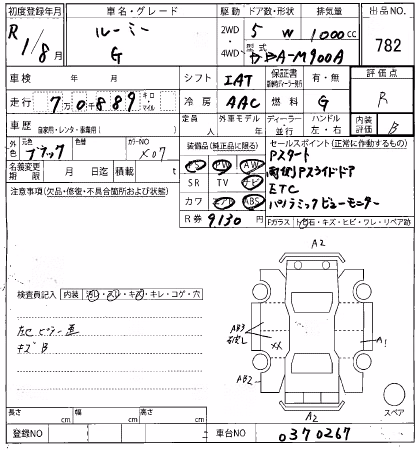 初度登録年月 車名・グレード 駆動 ドア数・形状 排気量 出品NO.
R 1/8月 ルーミー G 2WD 4WD 5 W 1000cc 782
型式 DBA-M900A
車検 年 月 シフト IAT 保証書 有・無 評価点
走行 7万0889 キロ・マイル 冷房 AAC 燃料 G R
車歴 自家用・レンタ・事業用( ) 定員 人 外車モデル 年 ディーラー 並行 ハンドル 左・右 内装評価 B
外色 元色 ブラック 色替 カラーNO X07
装備品(純正品に限る) セールスポイント(正常に作動するもの)
PS PW AW Pスタート
名義変更期限 月 日迄 積載 t SR TV ナビ 両側Pスライドドア
注意事項(欠品・修復・不具合箇所および状態) カワ エアB ABS ETC
パノラミックビューモニター
R券 9,130 円 Fガラス トビ石・キズ・ヒビ・ワレ・リペア跡
A2
検査員記入 内装 キレ・コゲ・穴
左Cピラー
キズB
AB3
XX
A1
AB2
A2
スペア
長さ cm 幅 cm 高さ cm
登録NO 車台NO 0370267